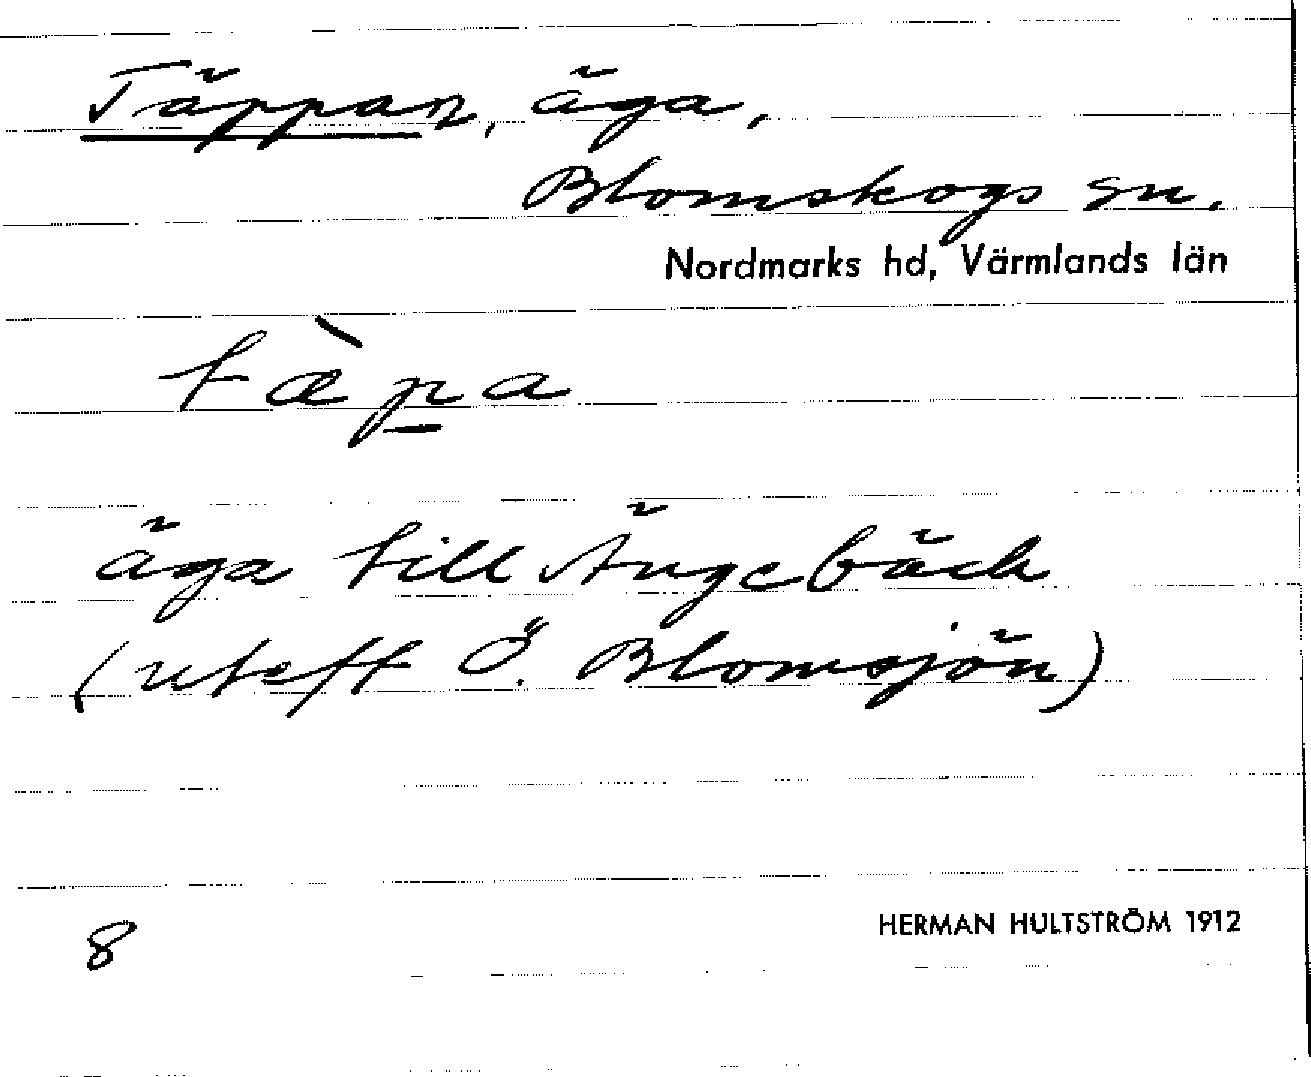 Täppan, äga,
Blomskogs sn.
Nordmarks hd, Värmlands län
tæ̀p̠a
äga till Ängebäck
(uteft Ö. Blomsjön)
8
HERMAN HULTSTRÖM 1912